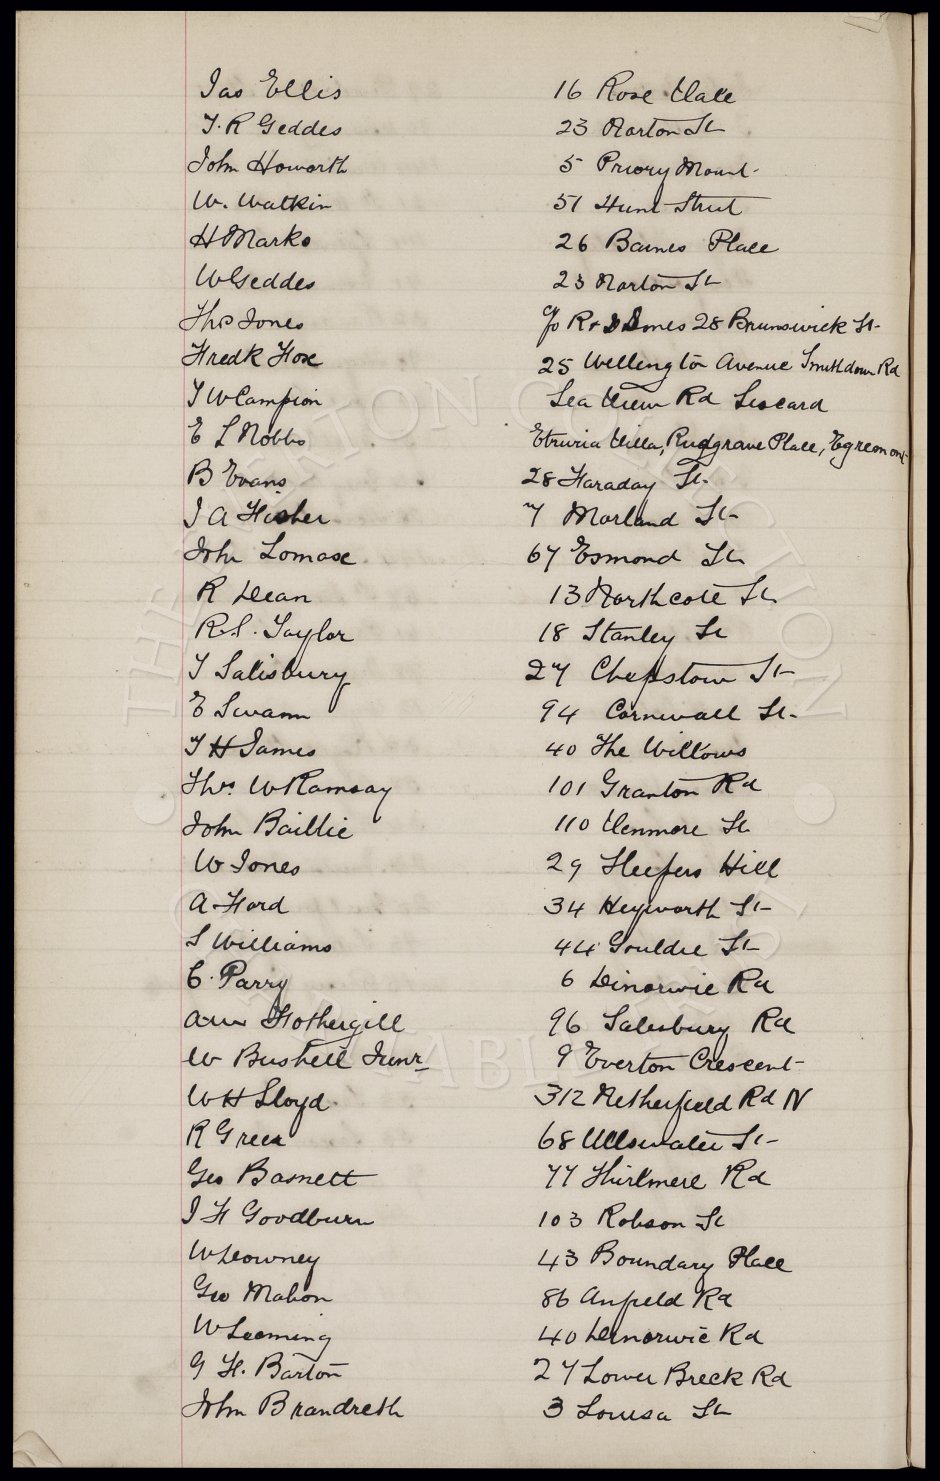 Jas Ellis 16 Rose Vale
T. R Geddes 23 Norton St
John Howorth 5 Priory Mount
W. Watkin 51 Hunt Street
H Marks 26 Barnes Place
W Geddes 23 Norton St
Thos Jones c/o R & D Jones 28 Brunswick St
Fredk Fox 25 Wellington Avenue Smithdown Rd
T W Campion Sea View Rd Liscard
E L Nobbs Etruria Villa, Rudgrave Place, Egremont
B Evans 28 Faraday St.
J A Fisher 7 Morland St
John Lomax 67 Esmond St
R Dean 13 Northcote St
R. S. Taylor 18 Stanley St
T Salisbury 27 Chepstow St
E Swann 94 Cornwall St.
T H James 40 The Willows
Thos. W Ramsay 101 Granton Rd
John Baillie 110 Venmore St
W Jones 29 Sleepers Hill
A Ford 34 Heyworth St
S Williams 44 Gouldie St
C. Parry 6 Dinorwic Rd
Fothergill 96 Salisbury Rd
W Bushell Junr 9 Everton Crescent
W H Lloyd 312 Netherfield Rd N
R Green 68 Ullswater St
Geo Basnett 77 Thirlmere Rd
J H Goodburn 103 Robson St
W Downey 43 Boundary Place
Geo Mahon 86 Anfield Rd
W Leeming 40 Dinorwic Rd
G H. Barton 27 Lower Breck Rd
John Brandreth 3 Louisa St
THE EVERTON COLLECTION
CHARITABLE TRUST